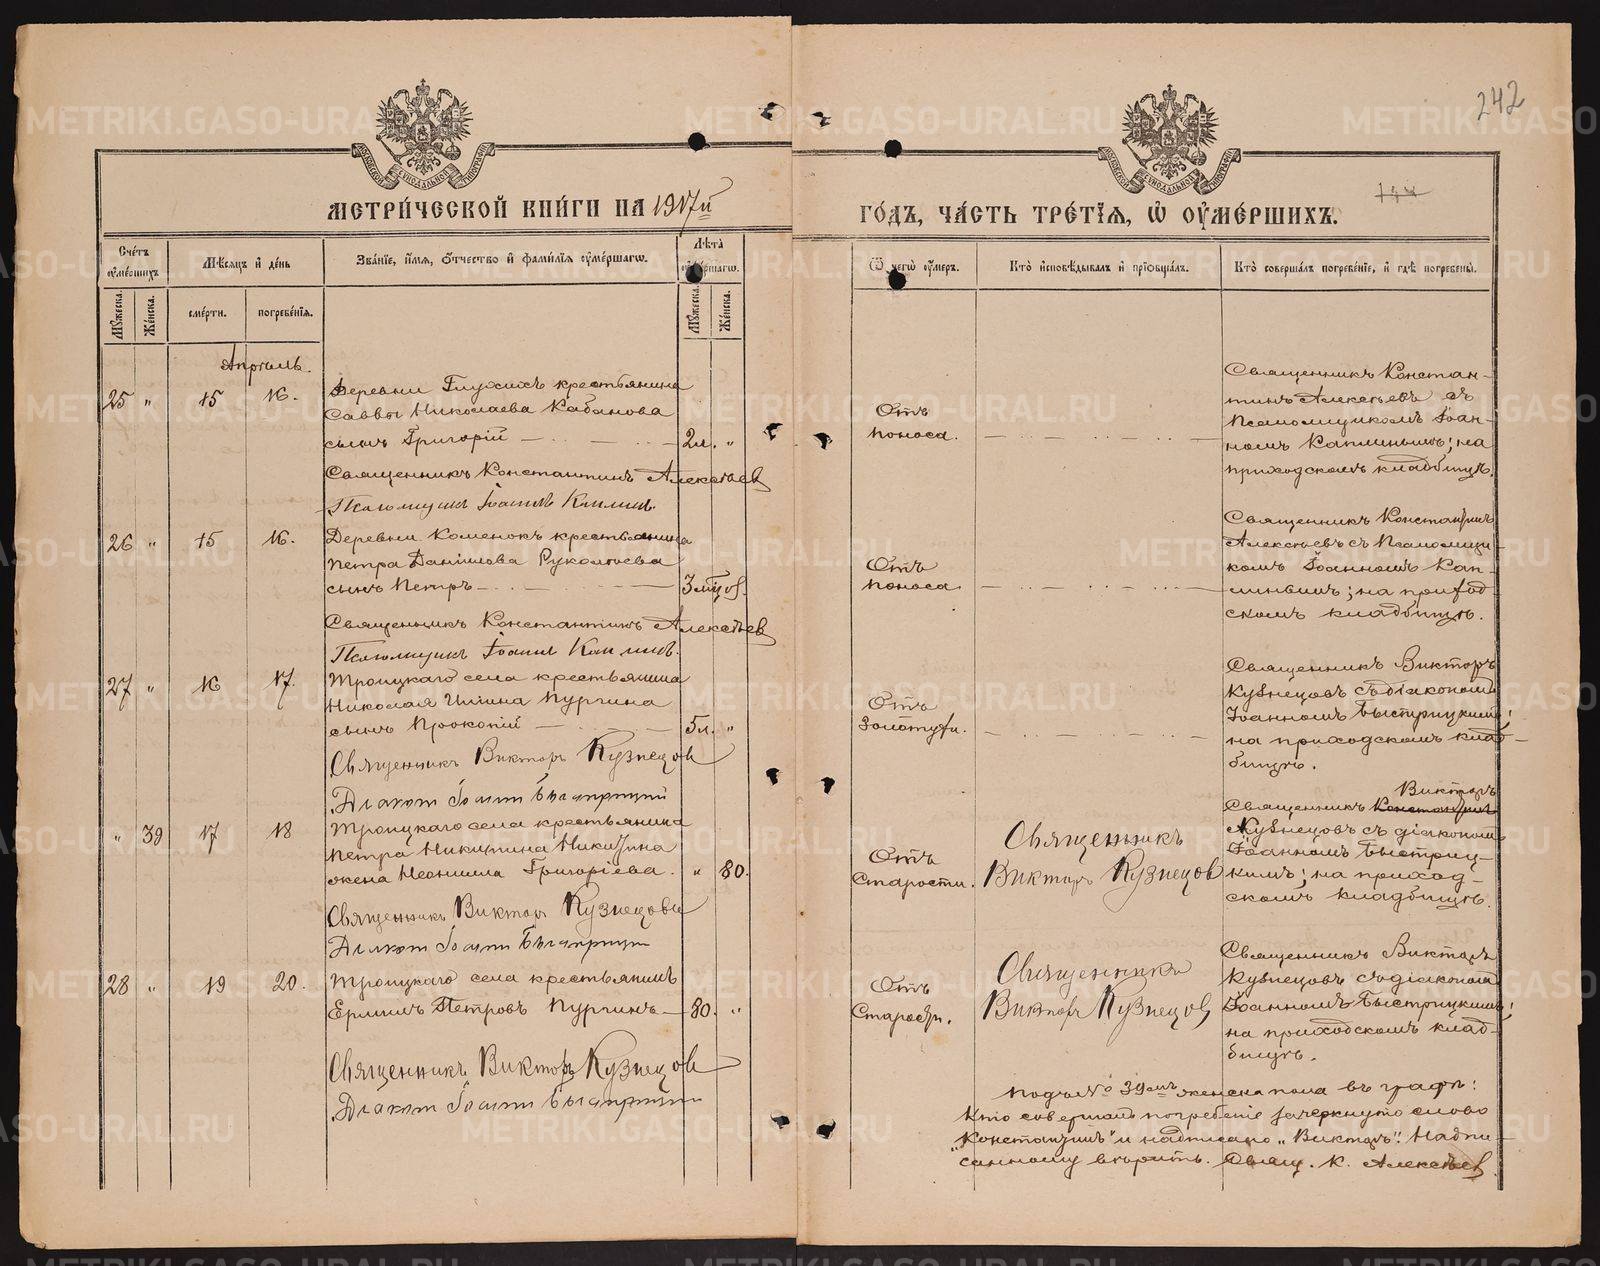 242
МОСКОВСКОЙ СѴНОДАЛЬНОЙ ТИПОГРАФІИ
МОСКОВСКОЙ СѴНОДАЛЬНОЙ ТИПОГРАФІИ
МЕТРИ́ЧЕСКОЙ КНИ́ГИ НА 1917й
ГО́ДЪ, ЧА́СТЬ ТРЕ́ТІѦ, Ѡ҆ ОУ҆МЕ́РШИХЪ.
Сче́тъ оу҆ме́ршихъ.
Мѣ́сѧцъ и҆ де́нь
Зва́нїе, и҆́мѧ, ѻ҆́тчество и҆ фами́лїѧ оу҆ме́ршагѡ.
Лѣ́та оу҆ме́ршагѡ.
Ѿ чегѡ̀ оу҆́меръ.
Кто̀ и҆сповѣ́дывалъ и҆ прїѡбща́лъ.
Кто̀ соверша́лъ погребе́нїе, и҆ гдѣ̀ погребены̀.
Мꙋ́жеска.
Же́нска.
сме́рти.
погребе́нїѧ.
Мꙋ́жеска.
Же́нска.
Апрѣль.
25 „ 15 16.
Деревни Глухихъ крестьянина
Саввы Николаева Кабанова
сынъ Григорій — 2л. „
Священникъ Константинъ Алексѣев
Псаломщикъ Іоаннъ Каплинъ.
Отъ
поноса.
Священникъ Констан-
тинъ Алексѣевъ съ
Псаломщикомъ Іоан-
номъ Каплинымъ; на
приходскомъ кладбищѣ.
26 „ 15 16.
Деревни Каменокъ крестьянина
Петра Данілова Руколѣева
сынъ Петръ — 3 мѣцов.
Священникъ Константинъ Алексѣев
Псаломщикъ Іоаннъ Каплинъ.
Отъ
поноса
Священникъ Константинъ
Алексѣевъ съ Псаломщи-
комъ Іоанномъ Кап-
линымъ; на приход-
скомъ кладбищѣ.
27 „ 16 17.
Троицкаго села крестьянина
Николая Ильина Пургина
сынъ Прокопій — 5л. „
Священникъ Викторъ Кузнецов
Діаконъ Іоаннъ Быстрицкій
Отъ
Золотухи.
Священникъ Викторъ
Кузнецовъ съ діакономъ
Іоанномъ Быстрицкимъ;
на приходскомъ клад-
бищѣ.
„ 39 17 18
Троицкаго села крестьянина
Петра Никитина Никитина
жена Неонила Григоріева. „ 80.
Священникъ Викторъ Кузнецовъ
Діаконъ Іоаннъ Быстрицкій
Отъ
Старости.
Священникъ
Викторъ Кузнецов
Викторъ
Священникъ Константинъ
Кузнецовъ съ діакономъ
Іоанномъ Быстриц-
кимъ; на приход-
скомъ кладбищѣ.
28 „ 19 20.
Троицкаго села крестьянинъ
Ермилъ Петровъ Пургинъ — 80. „
Священникъ Викторъ Кузнецов
Діаконъ Іоаннъ Быстрицкій
Отъ
Старости.
Священникъ
Викторъ Кузнецов
Священникъ Викторъ
Кузнецовъ съ діакономъ
Іоанномъ Быстрицкимъ;
на приходскомъ клад-
бищѣ.
Подъ № 39емъ женска пола въ графѣ:
Кто совершалъ погребеніе зачеркнуто слово
„Константинъ" и надписано „Викторъ". Надпи-
санному вѣрить. Свящ. К. Алексѣев